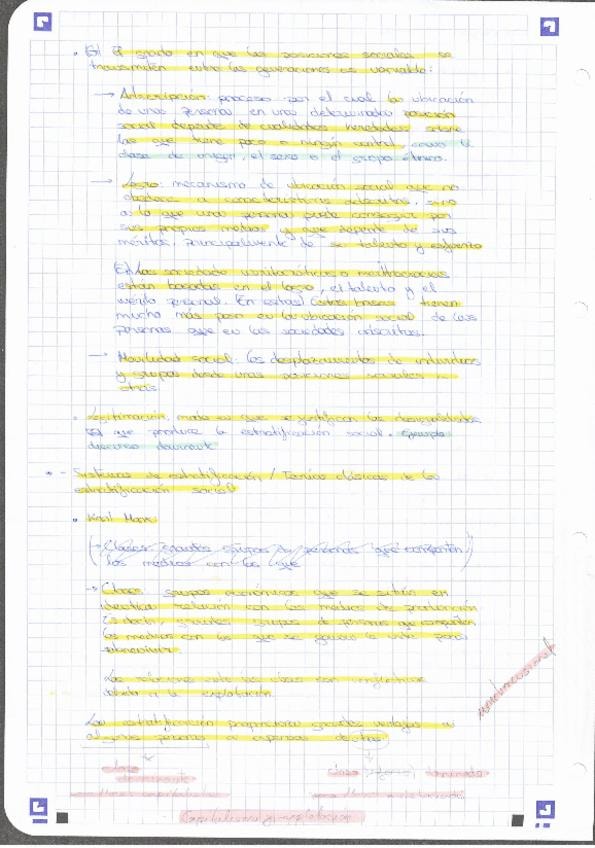 • El grado en que las posiciones sociales se
transmiten entre las generaciones es variable:
→ Adscripción: proceso por el cual la ubicación
de una persona en una determinada posición
social depende de cualidades heredadas sobre
las que tiene poco o ningún control, como la
clase de origen, el sexo o el grupo étnico.
→ Logro: mecanismo de ubicación social que no
obedece a características adscritas, sino
a lo que una persona puede conseguir por
sus propios medios y que depende de sus
méritos, principalmente de su talento y esfuerzo
las sociedades meritocráticas
están basadas en el logro, el talento y el
mérito personal. En estas tienen
mucho más peso en la ubicación social de las
personas que en las sociedades
→ Movilidad social: los desplazamientos de individuos
y grupos desde unas posiciones sociales a
otras
• Legitimación: modo en que se justifican las desigualdades
que produce la estratificación social. Ejemplo
discurso dominante
- Sistemas de estratificación / Teorías clásicas de la
estratificación social
• Karl Marx
(→ Clases: grandes grupos de personas que comparten
los medios con los que
→ Clases: grupos económicos que se sitúan en
idéntica relación con los medios de producción
Es decir, grandes grupos de personas que comparten
los medios con los que se ganan la vida para
sobrevivir.
Las relaciones entre las clases son
debido a la explotación.
La estratificación proporciona grandes ventajas a
algunas personas a expensas de otras
clase clase dominada
dominante